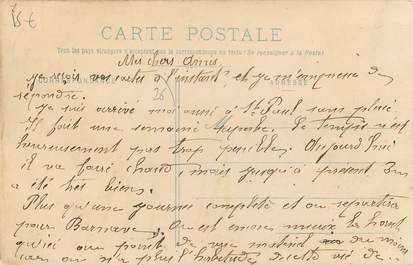 15€
CARTE POSTALE
Tous les pays étrangers n'acceptent pas la correspondance au recto (Se renseigner à la Poste)
Mes chers amis
CORRESPONDANCE ADRESSE
Je reçois vos cartes à l'instant et je m'empresse de
répondre.
26
Je suis arrivé à St Paul sans pluie.
Il fait une semaine superbe. Le temps n'est
heureusement pas trop pénible. Aujourd'hui
il va faire chaud, mais jusqu'à présent on
a été très bien.
Plus qu'une journée complète et on repartira
pour On est encore mieux là haut
qu'ici au point de vue matériel du moins
car on n'a plus l'habitude de cette vie de